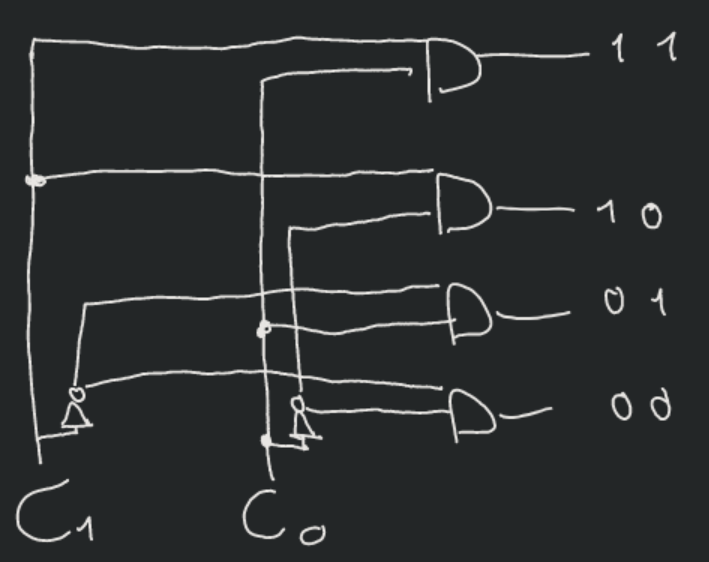 1 1
1 0
0 1
0 0
C1 C0